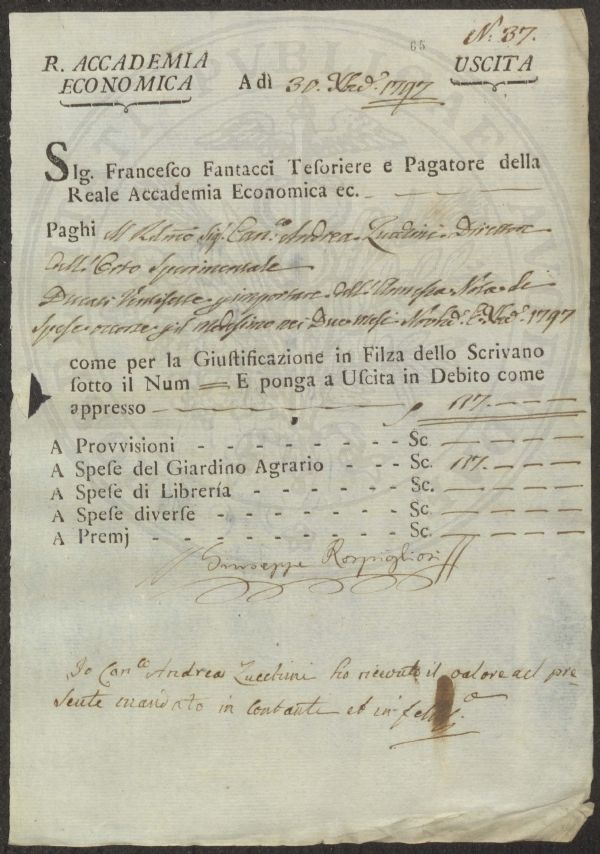 65
N.° 37.
R. ACCADEMIA
ECONOMICA
A dì 30. Xbre. 1797
USCITA
SIg. Francesco Fantacci Tesoriere e Pagatore della
Reale Accademia Economica ec.
Paghi Al Sig.r Can.co Andrea Zucchini Direttore
dell'Orto Sperimentale
Ducati importare dell' Annessa Nota di
Spese occorse p il medesimo nei Due mesi Novbre. e Xbre. 1797
come per la Giustificazione in Filza dello Scrivano
sotto il Num — E ponga a Uscita in Debito come
appresso 117. — — —
A Provvisioni - - - - - - - - Sc. — — — —
A Spese del Giardino Agrario - - - - Sc. 117. — — —
A Spese di Librería - - - - - - - Sc. — — — —
A Spese diverse - - - - - - - - Sc. — — — —
A Premj - - - - - - - - - - Sc. — — — —
Giuseppe Rospigliosi
Io Can.co Andrea Zucchini ho ricevuto il valore del pre
sente mandato in contante et in fede